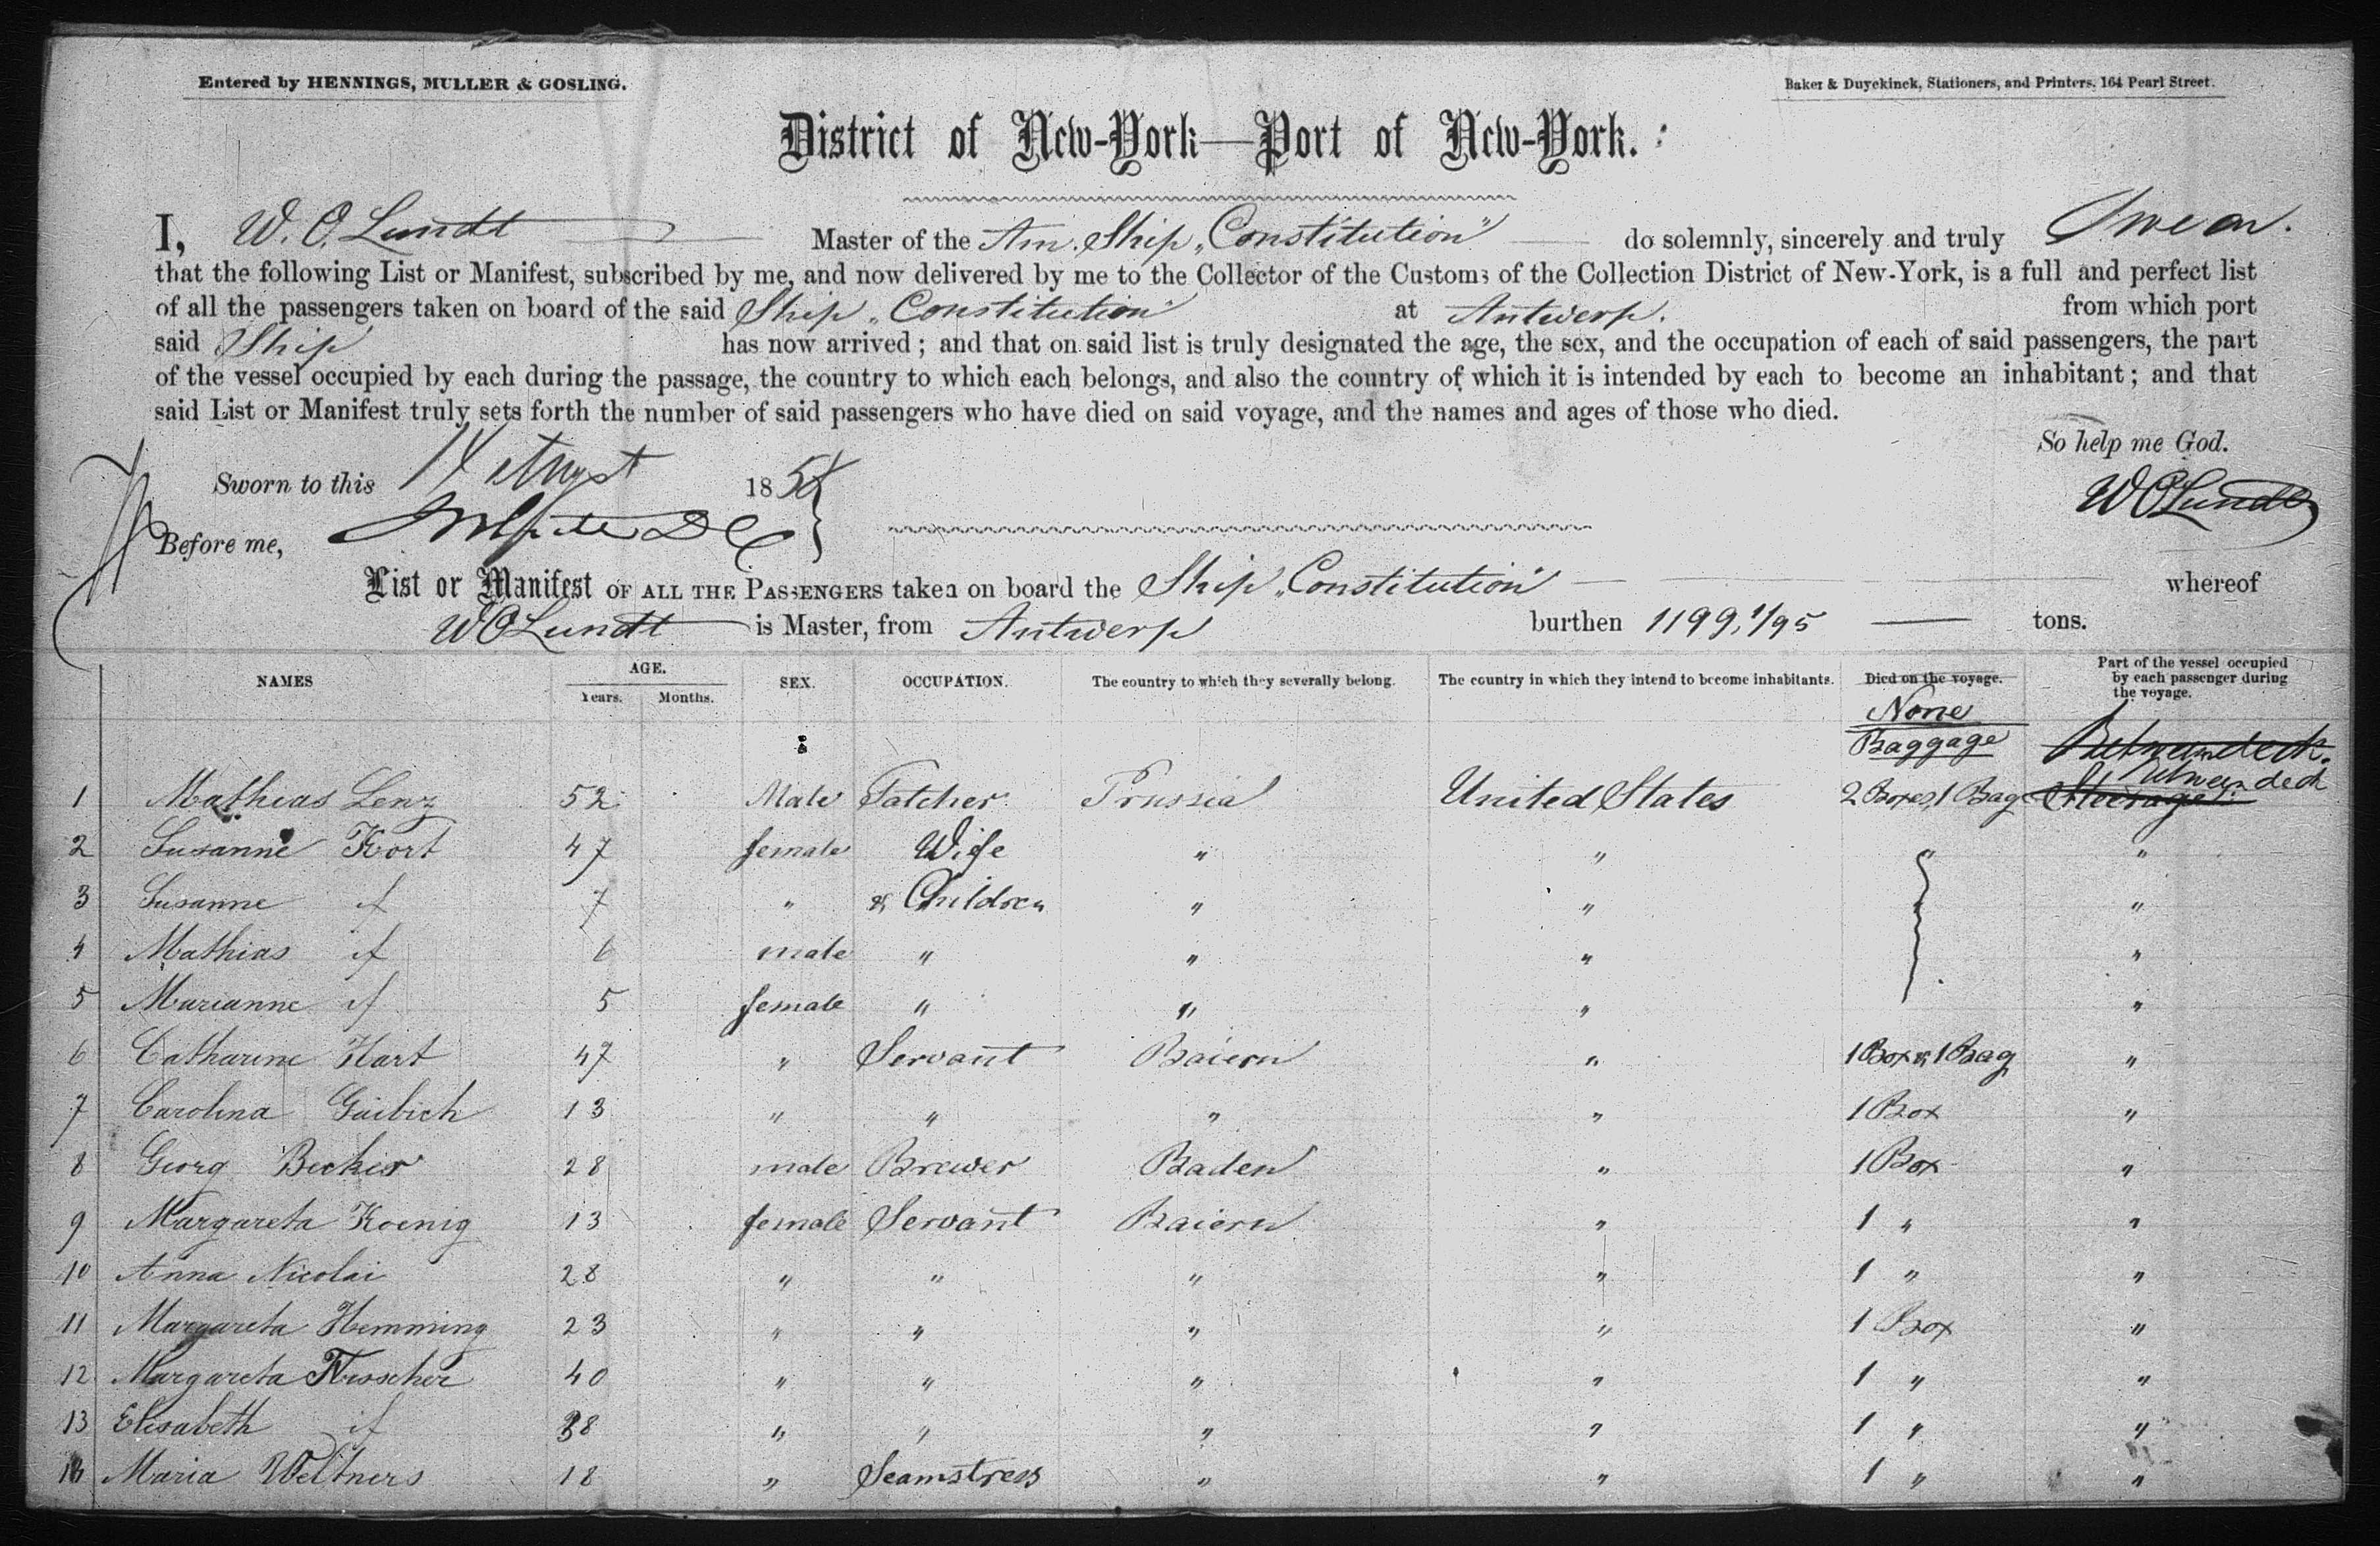 Entered by HENNINGS, MULLER & GOSLING.
Baker & Duyckinck, Stationers, and Printers, 164 Pearl Street.
District of New-York—Port of New-York.
I, W. O. Lundt Master of the Am. Ship „Constitution" do solemnly, sincerely and truly Swear.
that the following List or Manifest, subscribed by me, and now delivered by me to the Collector of the Customs of the Collection District of New-York, is a full and perfect list
of all the passengers taken on board of the said Ship „Constitution" at Antwerp. from which port
said Ship has now arrived; and that on said list is truly designated the age, the sex, and the occupation of each of said passengers, the part
of the vessel occupied by each during the passage, the country to which each belongs, and also the country of which it is intended by each to become an inhabitant; and that
said List or Manifest truly sets forth the number of said passengers who have died on said voyage, and the names and ages of those who died.
So help me God.
Sworn to this August 185
W O Lundt
Before me,
List or Manifest OF ALL THE PASSENGERS taken on board the Ship „Constitution" whereof
W O Lundt is Master, from Antwerp burthen 1199, 1/95 tons.
NAMES AGE. Years. Months. SEX. OCCUPATION. The country to which they severally belong. The country in which they intend to become inhabitants. Died on the voyage. Part of the vessel occupied by each passenger during the voyage.
None
Baggage Betweendeck.
1 Mathias Lenz 52 Male Fatcher Prussia United States 2 Boxes, 1 Bag Steerage Utweendeck
2 Susanne Kort 47 female Wife " " " "
3 Susanne if 7 " & Children " " " "
4 Mathias if 6 male " " " "
5 Marianne if 5 female " " " "
6 Catharine Hart 47 " Servant Baiern " 1 Box & 1 Bag "
7 Carolina Guibich 13 " " " " 1 Box "
8 Georg Becker 28 male Brewer Baden " 1 Box "
9 Margareta Koenig 13 female Servant Baiern " 1 " "
10 Anna Nicolai 28 " " " " 1 " "
11 Margareta Hemming 23 " " " " 1 Box "
12 Margareta 40 " " " " 1 " "
13 Elisabeth if 38 " " " " 1 " "
14 Maria Weltners 18 " Seamstress " " 1 " "